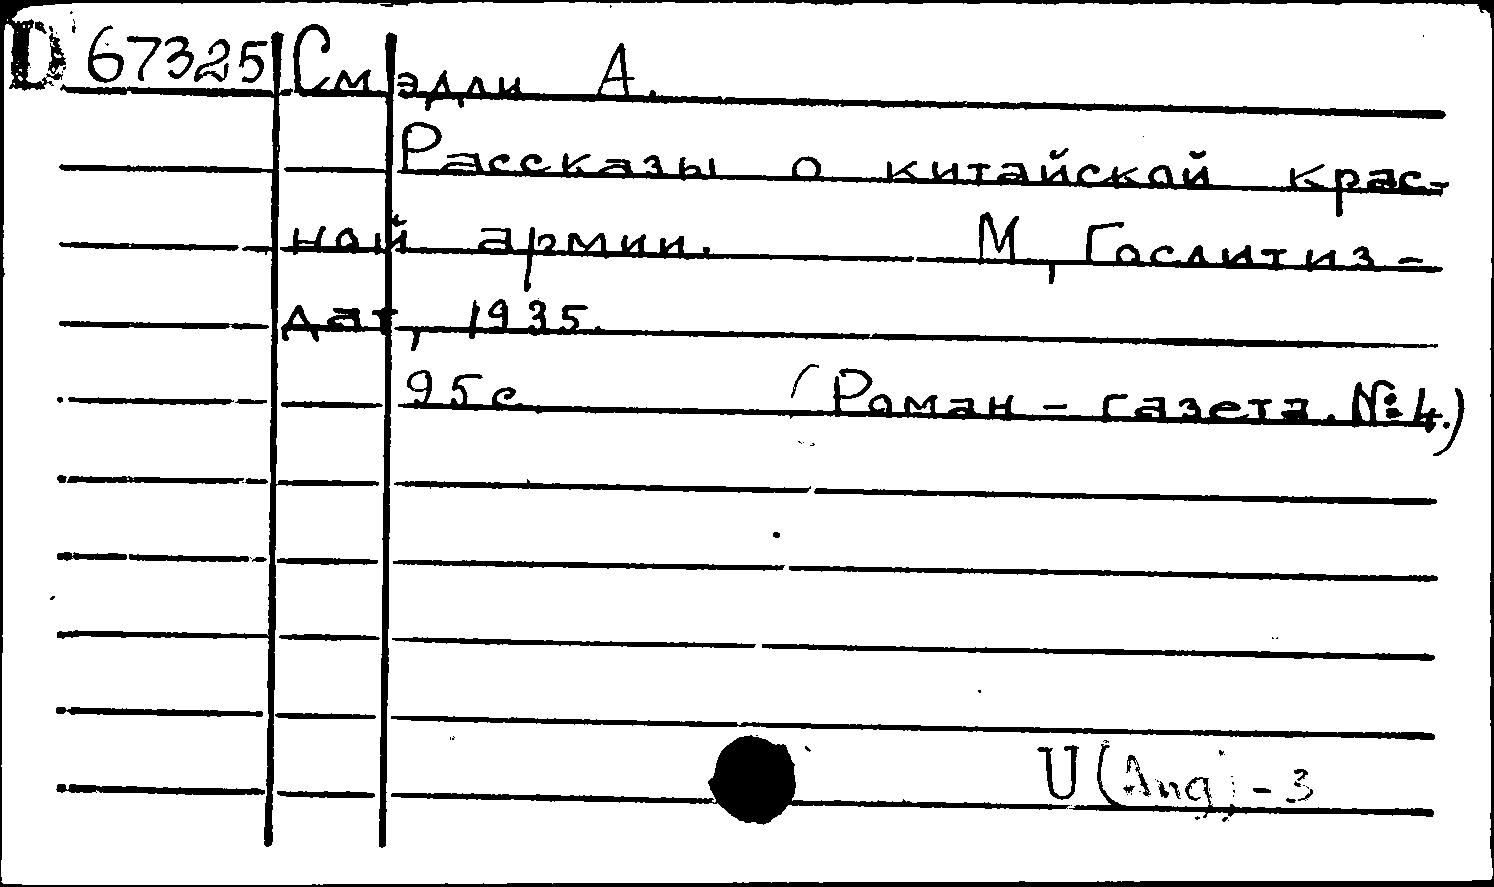 D 67325 Смэдли А.
Рассказы о китайской крас-
ной армии. М, Гослитиз-
дат, 1935.
95с (Роман-газета. №4.)
U(Ang)-3